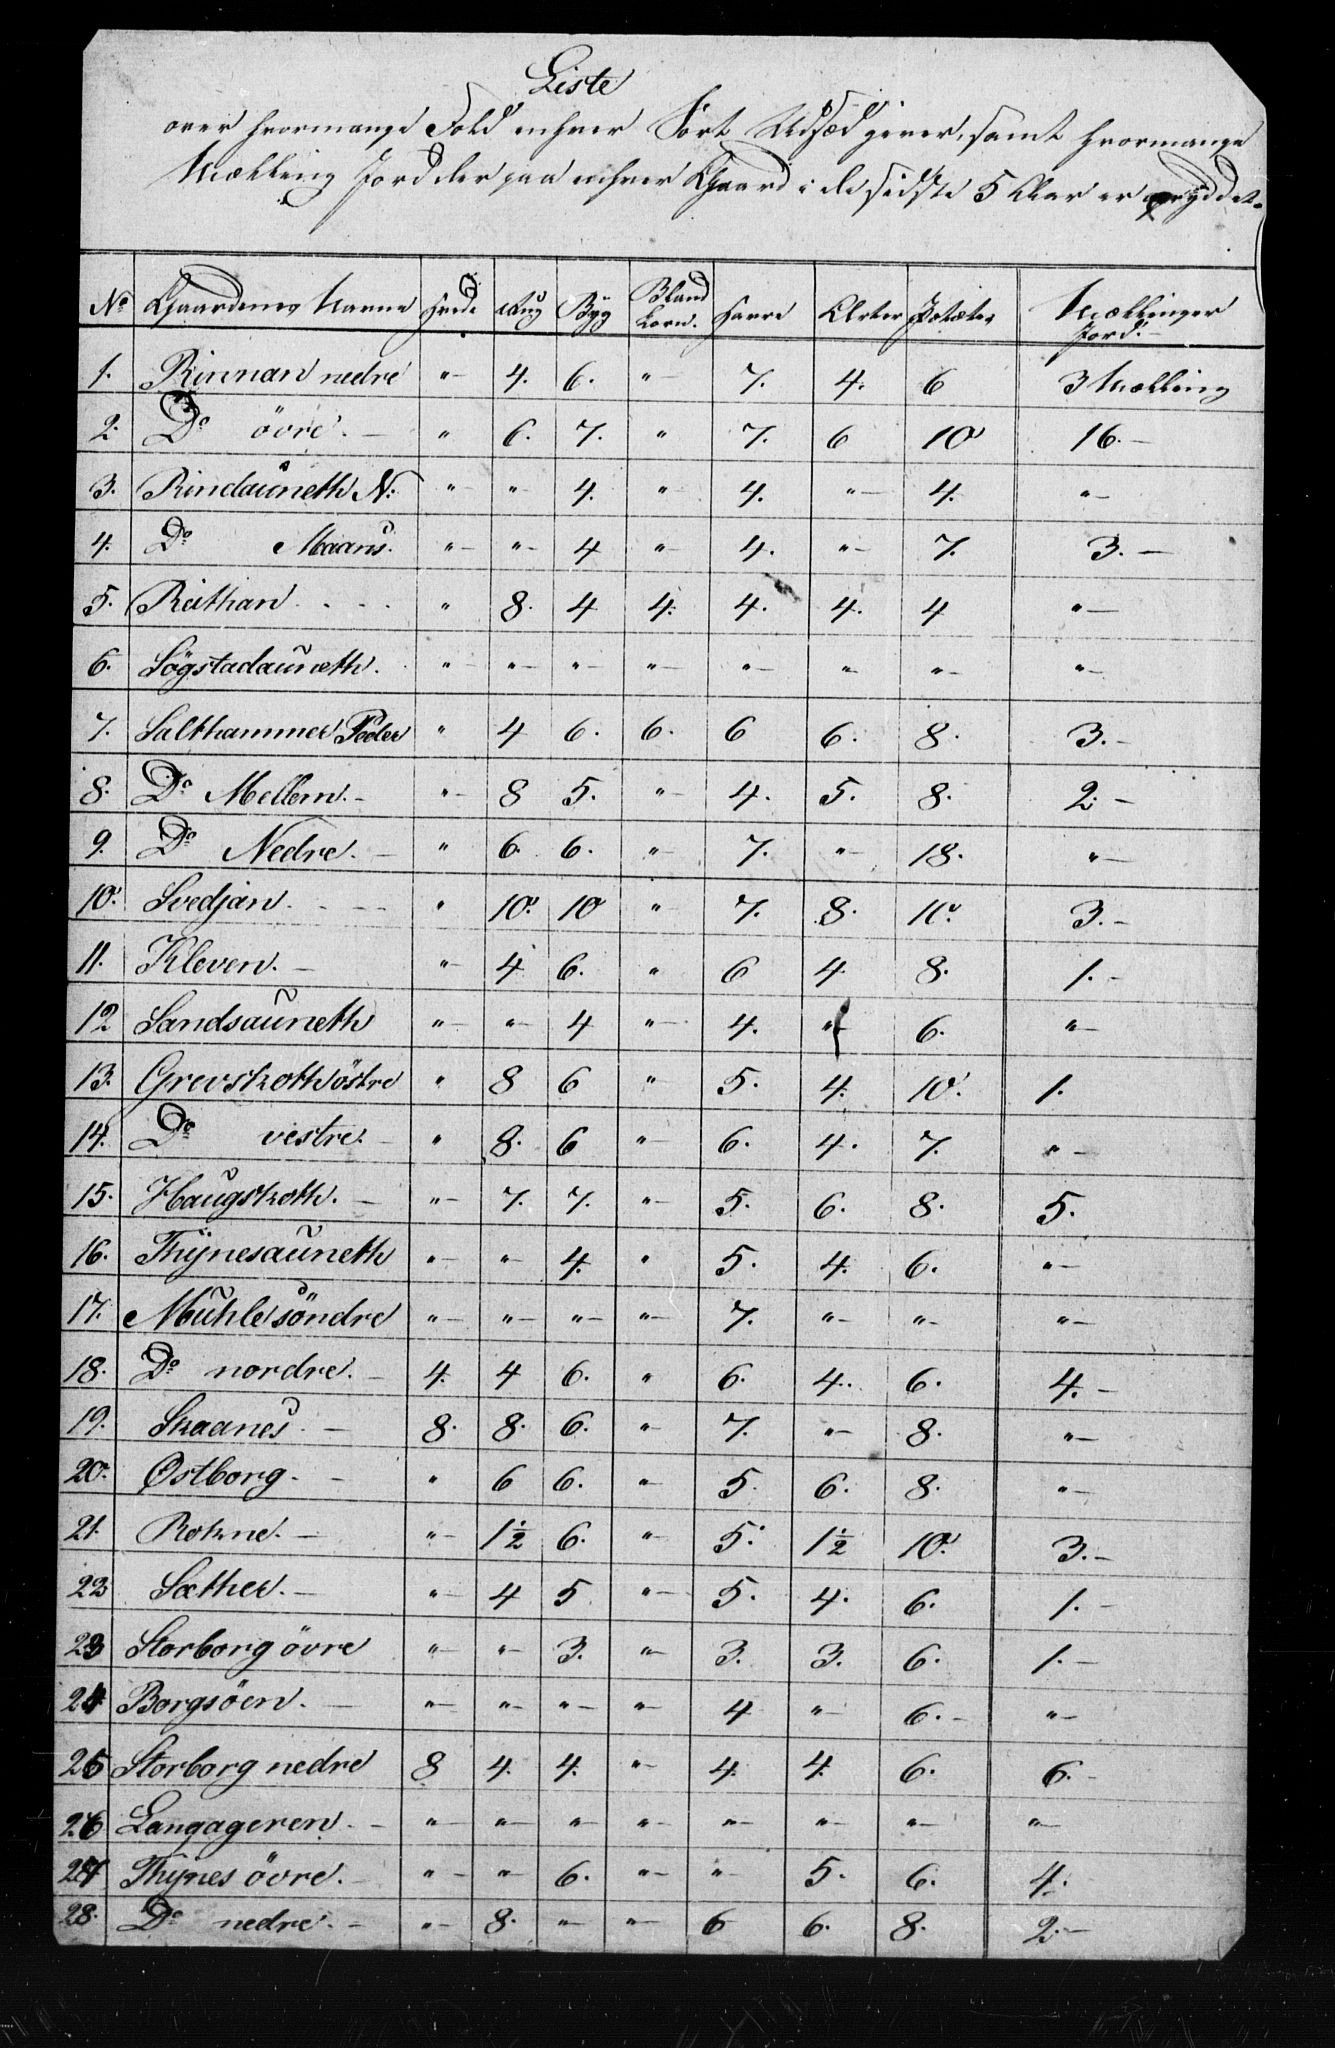 Liste
over hvormange Fold enhver Sort Udsæd giver, samt hvormange
Mælling Jord der paa enhver Gaard i de sidste 5 Aar er opryddet.
No Gaardenes Navne Hvede Rug Byg Bland Korn. Havre Erter Potæter Mællinger Jord.
1. Rinnan nedre " 4. 6. " 7. 4. 6 3 Mælling
2. Do övre. " 6. 7. " 7. 6 10 16.
3. Rindauneth N: " " 4. " 4. " 4. "
4. Do Maans. " " 4 " 4. " 7. 3.
5. Reithan " 8. 4 4. 4. 4. 4 "
6. Søgstadauneth. " " " " " " " "
7. Salthammer Peder " 4 6. 6. 6 6. 8. 3.
8. Do Mellem. " 8 5. " 4. 5. 8. 2.
9. Do Nedre. " 6. 6. " 7. " 18. "
10. Svedjan. " 10. 10 " 7. 8. 10. 3.
11. Kleven. " 4 6. " 6 4 8. 1.
12 Sandsauneth " " 4 " 4. " 6. "
13. Grevskott östre " 8 6 " 5. 4. 10. 1.
14. Do vestre. " 8. 6 " 6. 4. 7. "
15. Haugskott. " 7. 7. " 5. 6. 8. 5.
16. Thynesauneth " " 4. " 5. 4. 6. "
17. Muhle söndre " " " " 7. " " "
18. Do nordre. 4. 4 6. " 6. 4. 6. 4.
19. Skaanes. 8. 8. 6. " 7. " 8. "
20. Østborg. " 6 6. " 5. 6. 8. "
21. Rokne. " 1½ 6. " 5. 1½ 10. 3.
22 Sæther. " 4 5 " 5. 4. 6. 1.
23 Storborg övre " " 3. " 3. 3. 6. 1.
24 Borgsöen. " " " " 4 " 6. "
25 Storborg nedre 8 4. 4. " 4. 4. 6. 6.
26 Langageren. " " " " " " " "
27 Thynes övre. " " 6. " " 5. 6. 4.
28. Do nedre. " 8. " " 6 6. 8. 2.